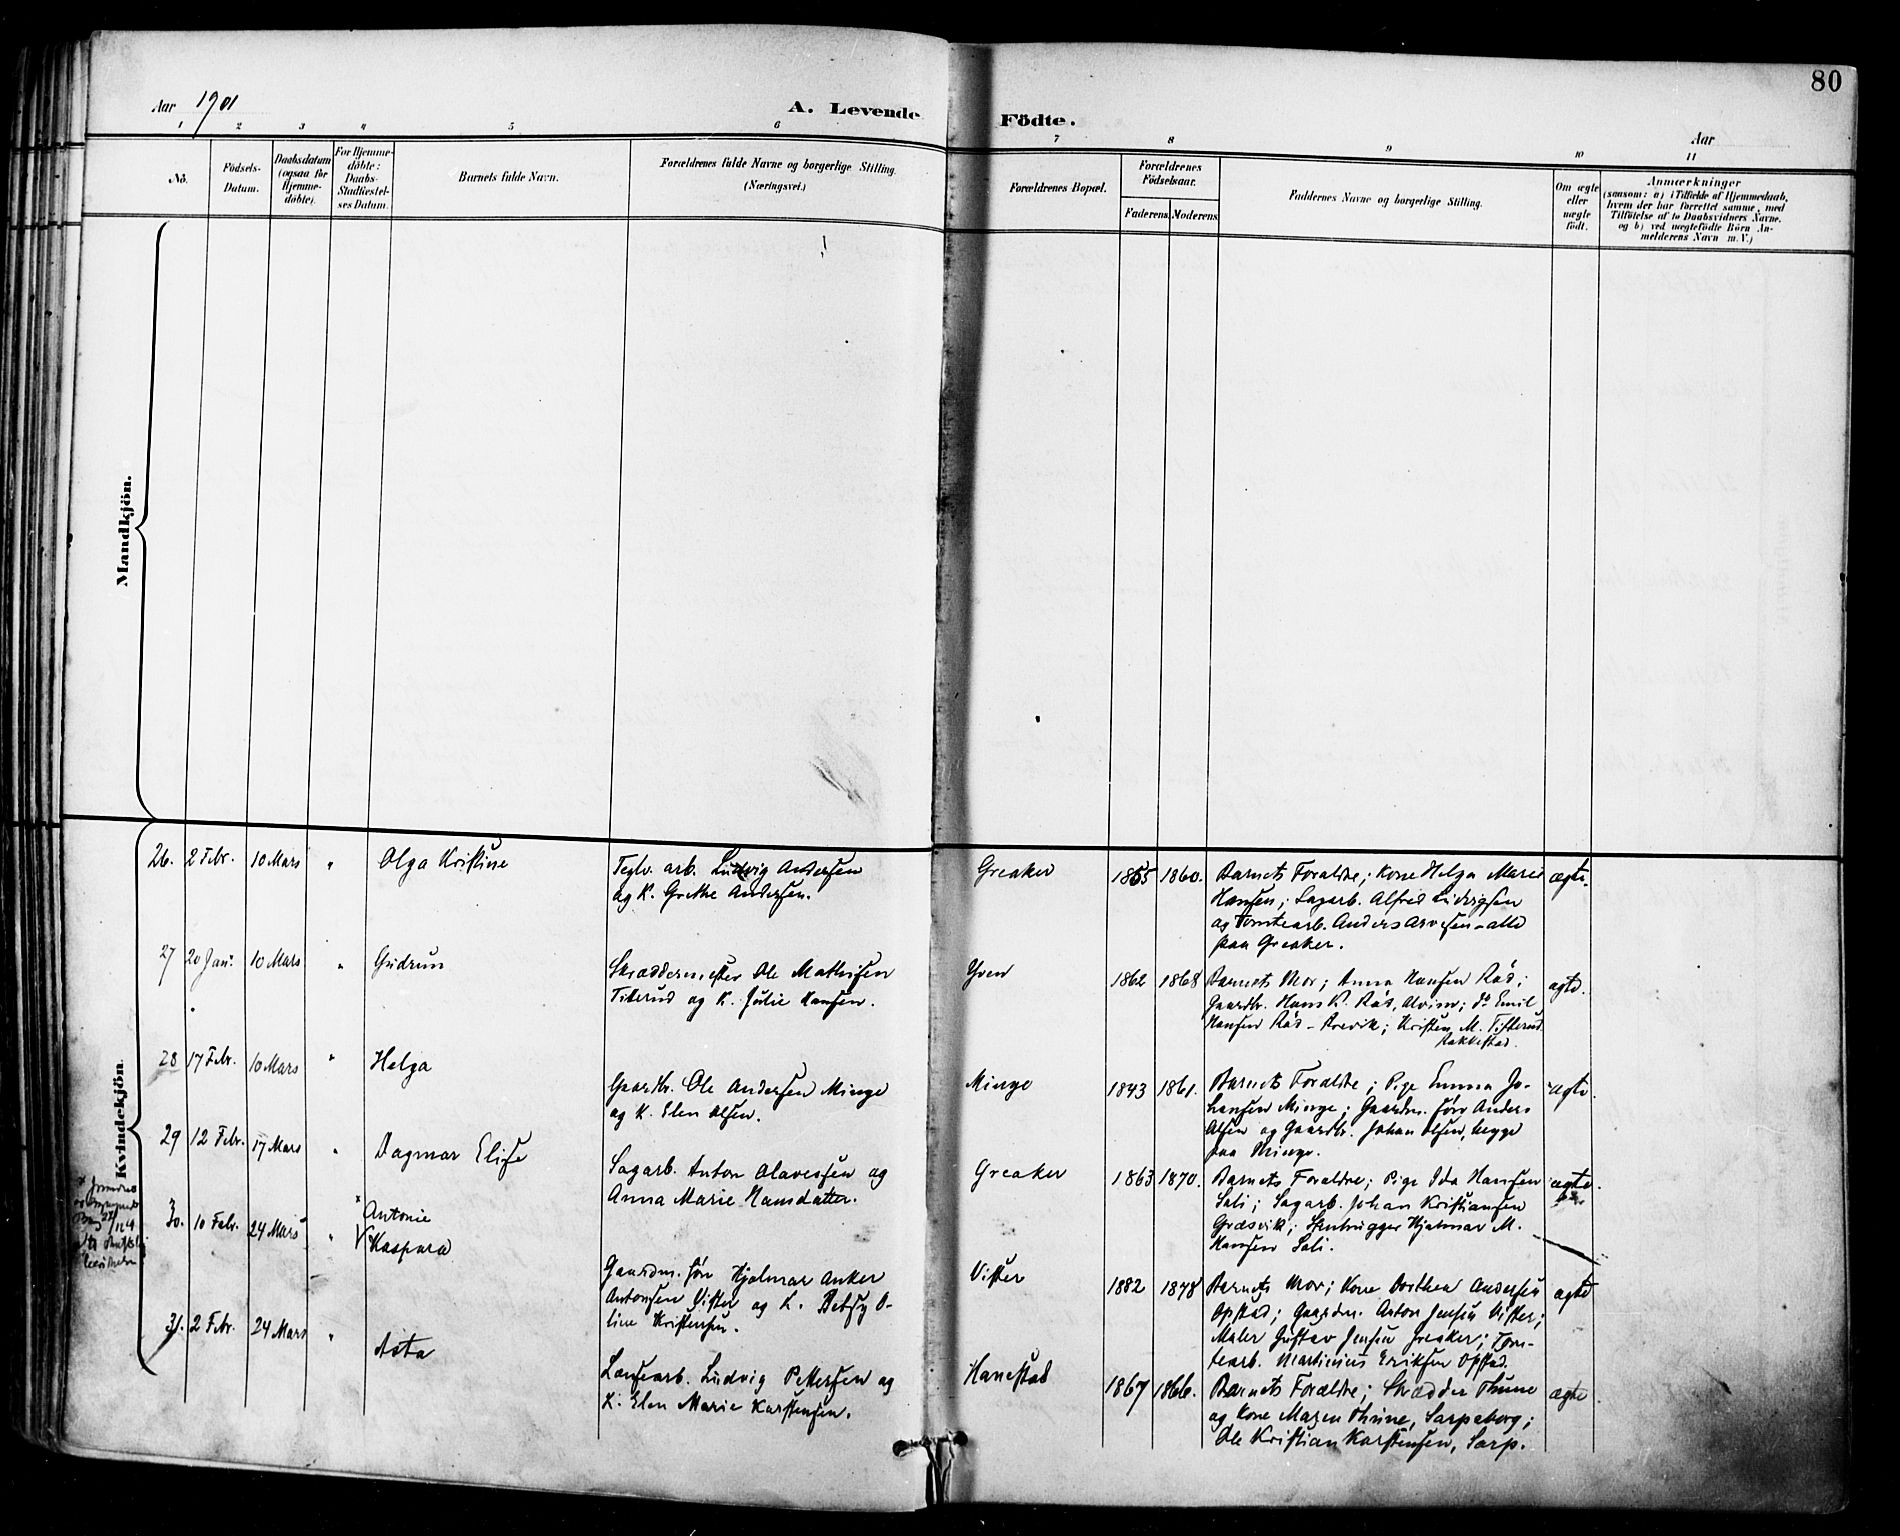 80
Aar 1901
A. Levende
Födte.
Aar
1 2 3 4 5 6 7 8 9 10 11
No.
Födsels-
Datum.
Daabsdatum
(ogsaa for
Hjemme-
döbte).
For Hjemme-
döbte:
Daabs-
Stadfæstel-
ses Datum.
Barnets fulde Navn.
Forældrenes fulde Navne og borgerlige Stilling.
(Næringsvei.)
Forældrenes Bopæl.
Forældrenes
Födselsaar.
Faderens. Moderens.
Faddernes Navne og borgerlige Stilling.
Om ægte
eller
uægte
födt.
Anmærkninger
(saasom: a) i Tilfælde af Hjemmedaab,
hvem der har forrettet samme, med
Tilföielse af to Daabsvidners Navne.
og b) ved uægtefödte Börn An-
melderens Navn m. V.)
Mandkjön.
Kvindekjön.
26. 2 Febr. 10 Mars " Olga Kristine
Teglv. arb. Ludvig Andersen
og K. Grethe Andersen.
Greaker 1855 1860.
Barnets Forældre; Kone Helga Marie
Hansen; Sagarb. Alfred Ludvigsen
og Tomtearb. Anders Arvesen - alle
paa Greaker.
ægte.
27 20 Jan. 10 Mars " Gudrun
Skræddermester Ole Mathisen
Titterud og K. Julie Hansen.
Yven 1862 1868
Barnets Mor; Anna Hansen Råd;
Gaardbr. Hans K. Råd, Alvim; do Emil
Hansen Råd - Brevik; Kristen M. Titterud
Rakkestad.
ægte.
28 17 Febr. 10 Mars " Helga
Gaardbr. Ole Andersen Minge
og K. Elen Olsen.
Minge 1843 1861.
Barnets Forældre; Pige Emma Jo-
hansen Minge; Gaardm. søn Anders
Olsen og Gaardbr. Johan Olsen, begge
paa Minge.
ægte.
29 12 Febr. 17 Mars " Dagmar Elise
Sagarb. Anton Olavessen og
Anna Marie Hansdatter.
Greaker 1863 1870.
Barnets Forældre; Pige Ida Hansen
Soli; Sagarb. Johan Kristiansen
Græsvik; Stenhugger Hjalmar M.
Hansen Soli.
ægte.
30. 10 Febr. 24 Mars " Antonie
Kaspara
Gaardm. søn Hjalmar Anker
Antonsen Vister og K. Betsy O-
line Kristensen.
Vister 1882 1878
Barnets Mor; Kone Dorthea Andersen
Opstad; Gaardm. Anton Jensen Vister;
Maler Gustav Jensen Greaker; Tom-
tearb. Martinius Eriksen Opstad.
ægte
31. 2 Febr. 24 Mars " Asta
Lænsearb. Ludvig Pettersen og
K. Elen Marie Karstensen.
Hanestad 1867 1866.
Barnets Forældre; Skrædder Thune
og Kone Maren Thune, Sarpsborg;
Ole Kristian Karstensen, Sarp.
ægte